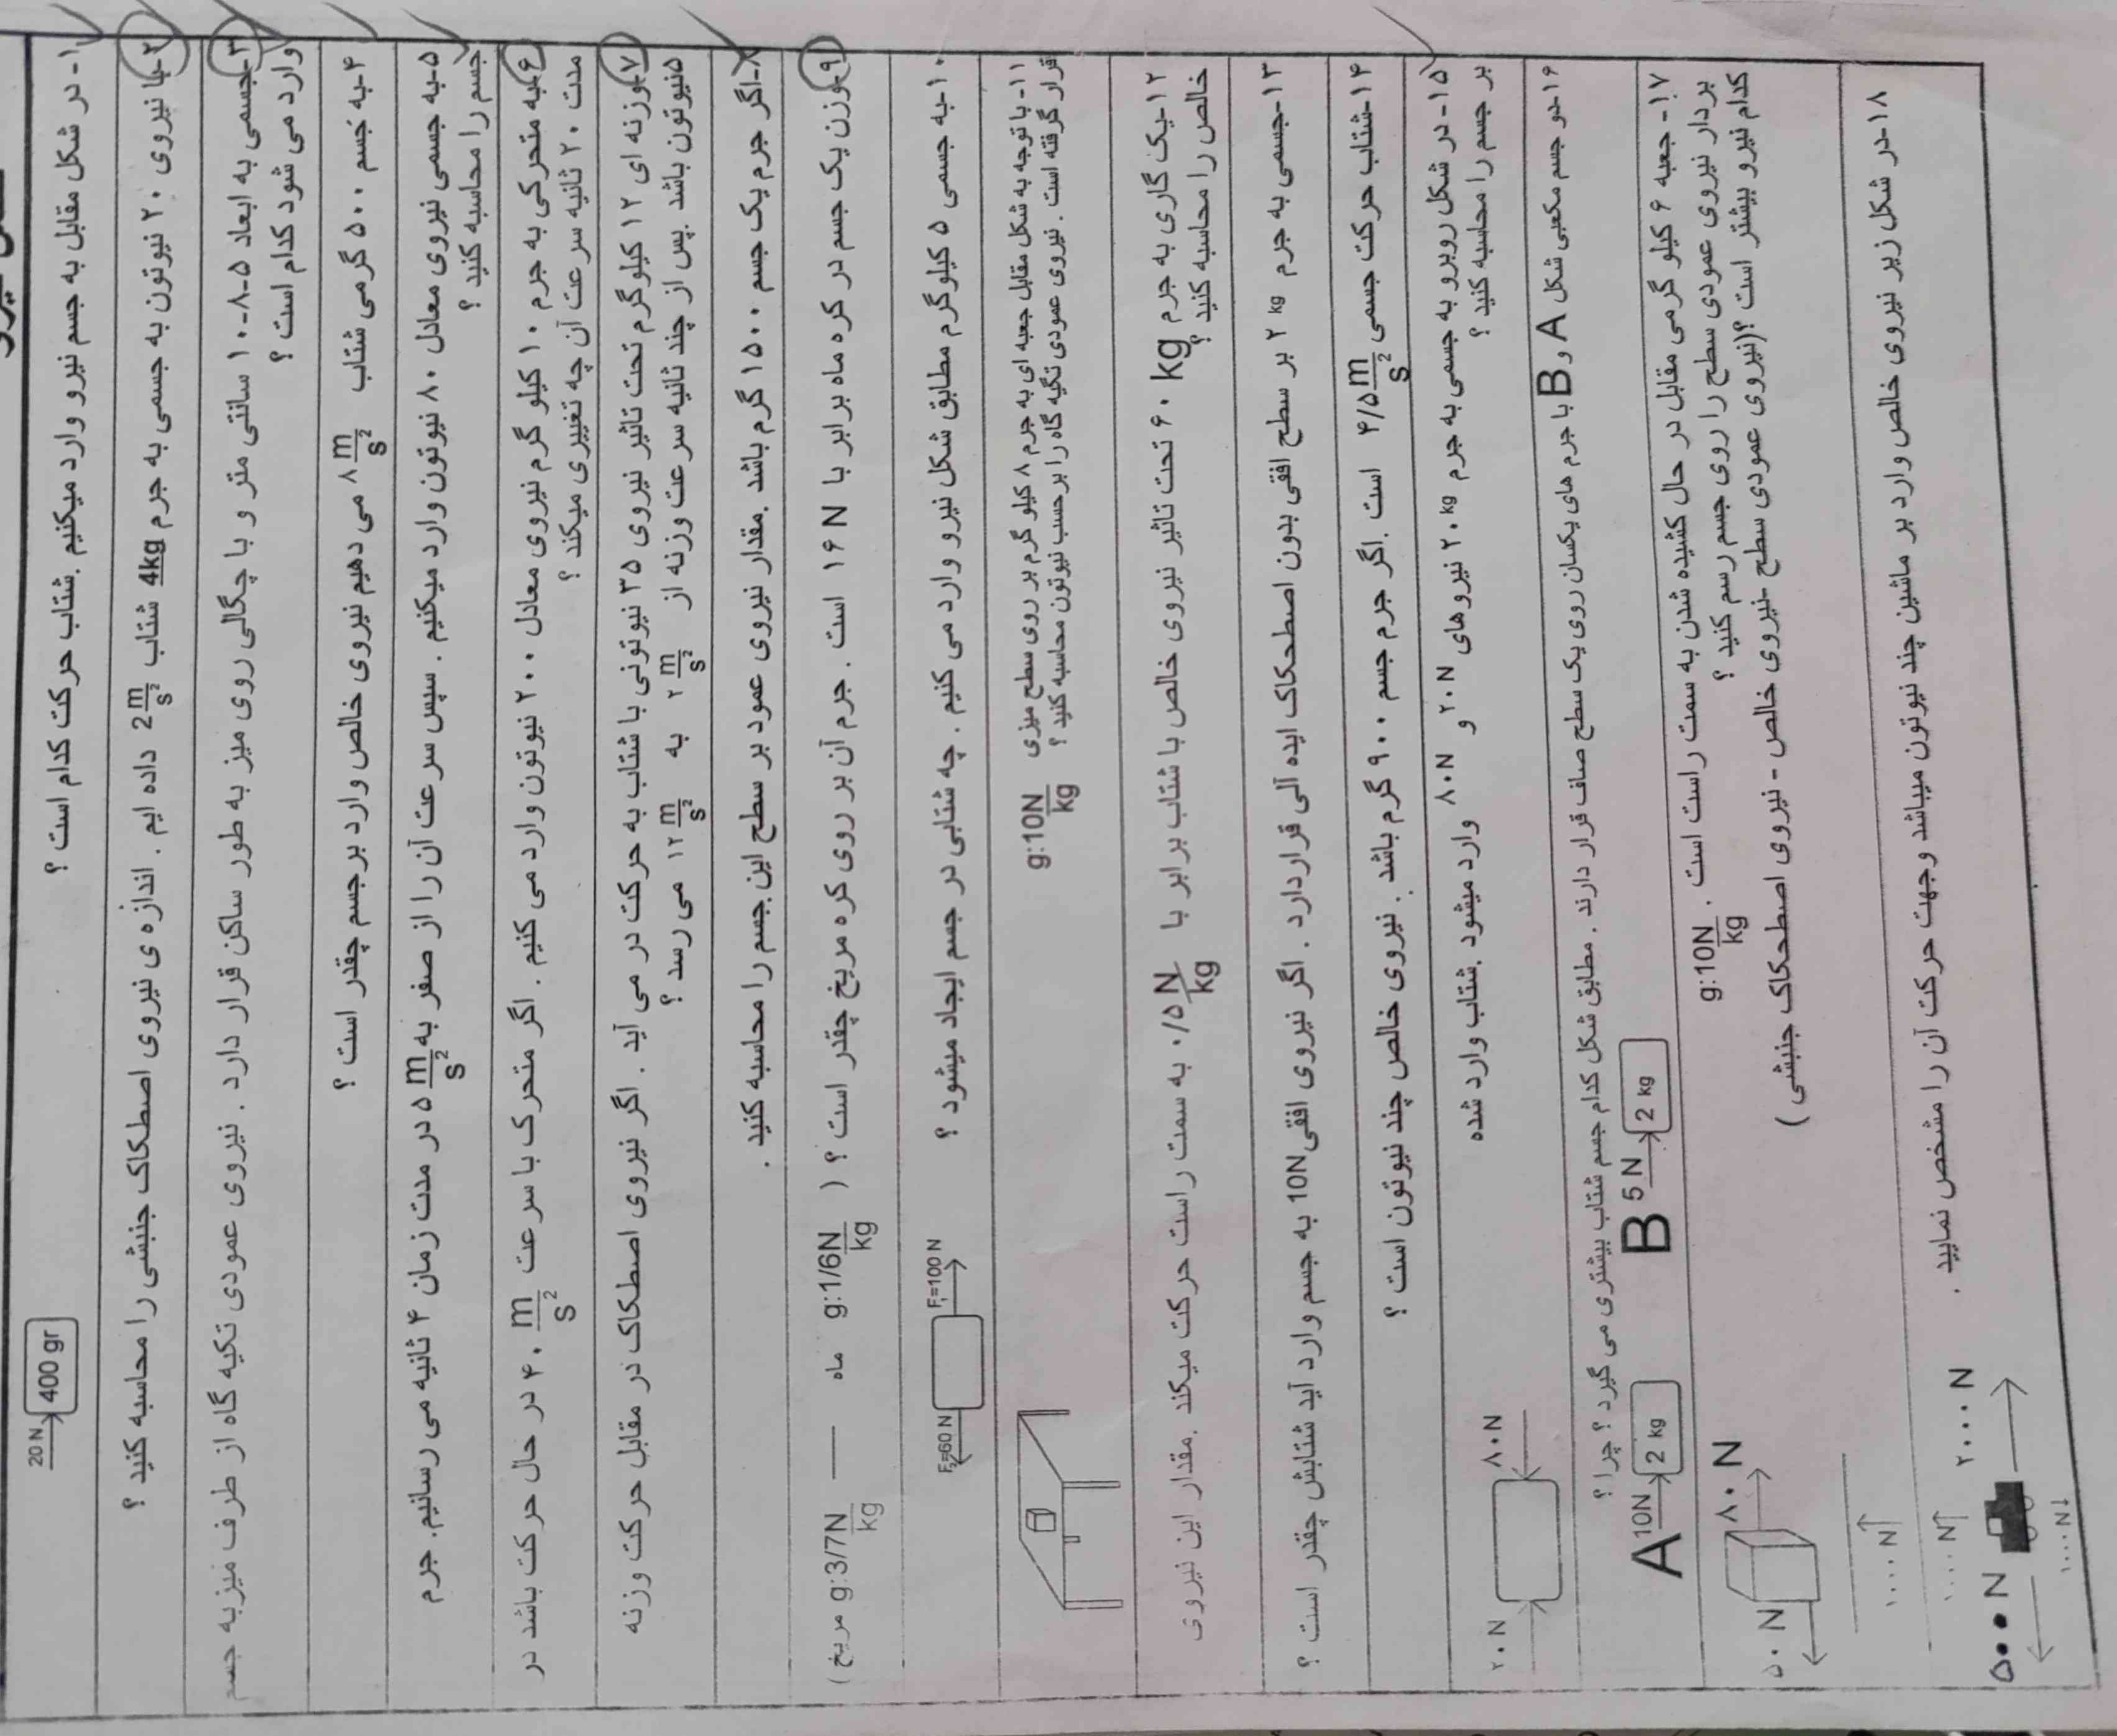 ۱- در شکل مقابل به جسم نیرو وارد میکنیم .شتاب حرکت کدام است ؟
20 N
400 gr
۲-با نیروی ۲۰ نیوتون به جسمی به جرم 4kg شتاب 2 m/s² داده ایم . اندازه ی نیروی اصطکاک جنبشی را محاسبه کنید ؟
۳-جسمی به ابعاد ۵-۸-۱۰ سانتی متر و با چگالی روی میز به طور ساکن قرار دارد . نیروی عمودی تکیه گاه از طرف میز به جسم
وارد می شود کدام است ؟
۴-به جسم ۵۰۰ گرمی شتاب ۸ m/s² می دهیم نیروی خالص وارد بر جسم چقدر است ؟
۵-به جسمی نیروی معادل ۸۰ نیوتون وارد میکنیم . سپس سرعت آن را از صفر به ۵ m/s² در مدت زمان ۴ ثانیه می رسانیم. جرم
جسم را محاسبه کنید ؟
۶-به متحرکی به جرم ۱۰ کیلو گرم نیروی معادل ۲۰۰ نیوتون وارد می کنیم . اگر متحرک با سرعت ۴۰ m/s² در حال حرکت باشد در
مدت ۲۰ ثانیه سرعت آن چه تغییری میکند ؟
۷-وزنه ای ۱۲ کیلوگرم تحت تاثیر نیروی ۳۵ نیوتونی با شتاب به حرکت در می آید . اگر نیروی اصطکاک در مقابل حرکت وزنه
۵نیوتون باشد .پس از چند ثانیه سرعت وزنه از ۲ m/s² به ۱۲ m/s² می رسد ؟
۸-اگر جرم یک جسم ۱۵۰۰ گرم باشد .مقدار نیروی عمود بر سطح این جسم را محاسبه کنید .
۹-وزن یک جسم در کره ماه برابر با ۱۶ N است . جرم آن بر روی کره مریخ چقدر است ؟ ( g:1/6N/kg ماه — g:3/7N/kg مریخ )
۱۰-به جسمی ۵ کیلوگرم مطابق شکل نیرو وارد می کنیم . چه شتابی در جسم ایجاد میشود ؟
F₁=100 N
F₂=60 N
۱۱- با توجه به شکل مقابل جعبه ای به جرم ۸ کیلو گرم بر روی سطح میزی g:10N/kg
قرار گرفته است . نیروی عمودی تکیه گاه را برحسب نیوتون محاسبه کنید ؟
۱۲-یک گاری به جرم ۶۰ kg تحت تاثیر نیروی خالص با شتاب برابر با ۰/۵ N/kg به سمت راست حرکت میکند .مقدار این نیروی
خالص را محاسبه کنید ؟
۱۳-جسمی به جرم ۲ kg بر سطح افقی بدون اصطحکاک ایده آلی قراردارد . اگر نیروی افقی 10N به جسم وارد آید شتابش چقدر است ؟
۱۴-شتاب حرکت جسمی ۴/۵ m/s² است .اگر جرم جسم ۹۰۰ گرم باشد . نیروی خالص چند نیوتون است ؟
۱۵-در شکل روبرو به جسمی به جرم ۲۰ kg نیروهای ۲۰ N و ۸۰ N وارد میشود .شتاب وارد شده
بر جسم را محاسبه کنید ؟
۸۰ N
۲۰ N
۱۶-دو جسم مکعبی شکل A و B با جرم های یکسان روی یک سطح صاف قرار دارند . مطابق شکل کدام جسم شتاب بیشتری می گیرد ؟ چرا ؟
A 10N 2 kg
B 5 N 2 kg
۱۷- جعبه ۶ کیلو گرمی مقابل در حال کشیده شدن به سمت راست است . g:10N/kg
بردار نیروی عمودی سطح را روی جسم رسم کنید ؟
کدام نیرو بیشتر است ؟(نیروی عمودی سطح -نیروی خالص - نیروی اصطحکاک جنبشی )
۸۰ N
۵۰ N
۱۸-در شکل زیر نیروی خالص وارد بر ماشین چند نیوتون میباشد وجهت حرکت آن را مشخص نمایید .
۱۰۰۰ N
۱۰۰۰ N
۲۰۰۰ N
۵۰۰ N
۱۰۰۰ N